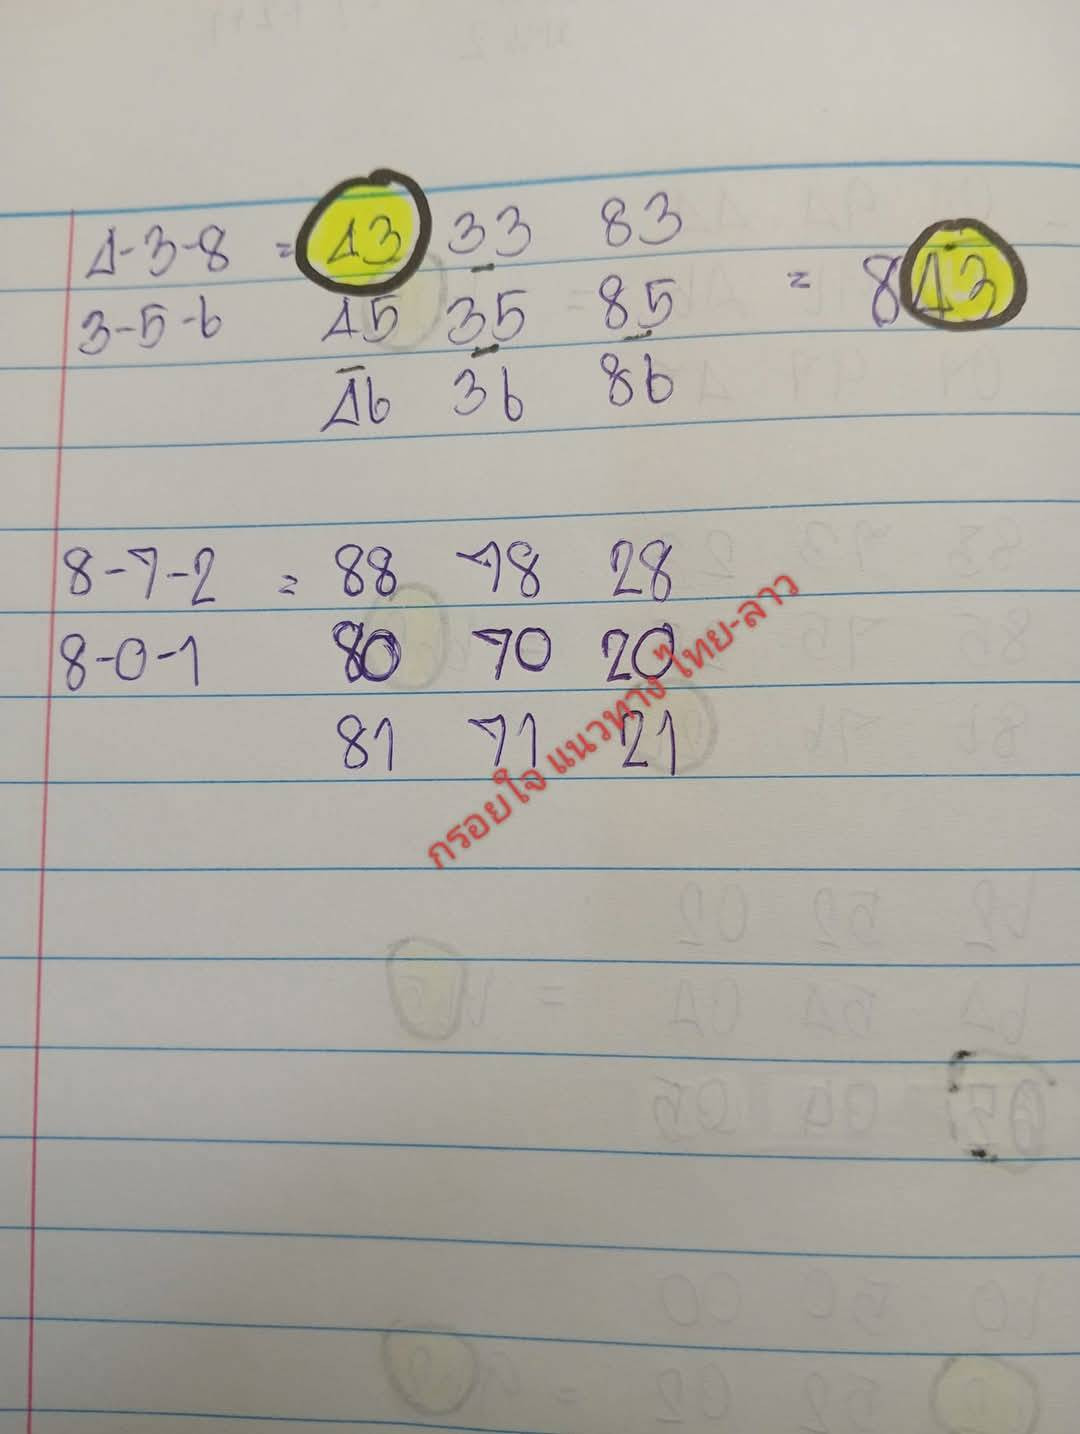 4-3-8 = 43 33 83
3-5-6 45 35 85 = 843
46 36 86
8-7-2 = 88 78 28
8-0-1 80 70 20
81 71 21
กรอยใจ แนวทาง ไทย-ลาว